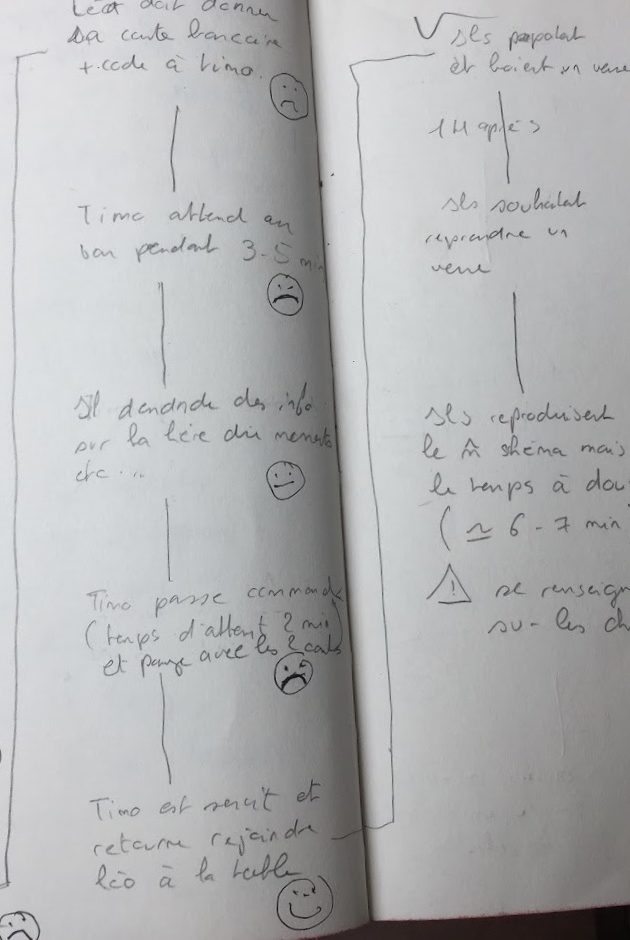 Léo doit donner
sa carte bancaire
+ code à timo.
Timo attend au
bar pendant 3-5 min
Il demande des info
sur la bière du moment
etc...
Timo passe commande
(temps d'attent 2 min)
et paye avec les 2 cartes
Timo est servit et
retourne rejoindre
léo à la table
Ils papotent
et boient un verre
1H après
Ils souhaitent
reprendre un
verre
Ils reproduisent
le m̂ shéma mais
le temps à dou
(≃ 6 - 7 min
se renseign
su- les ch